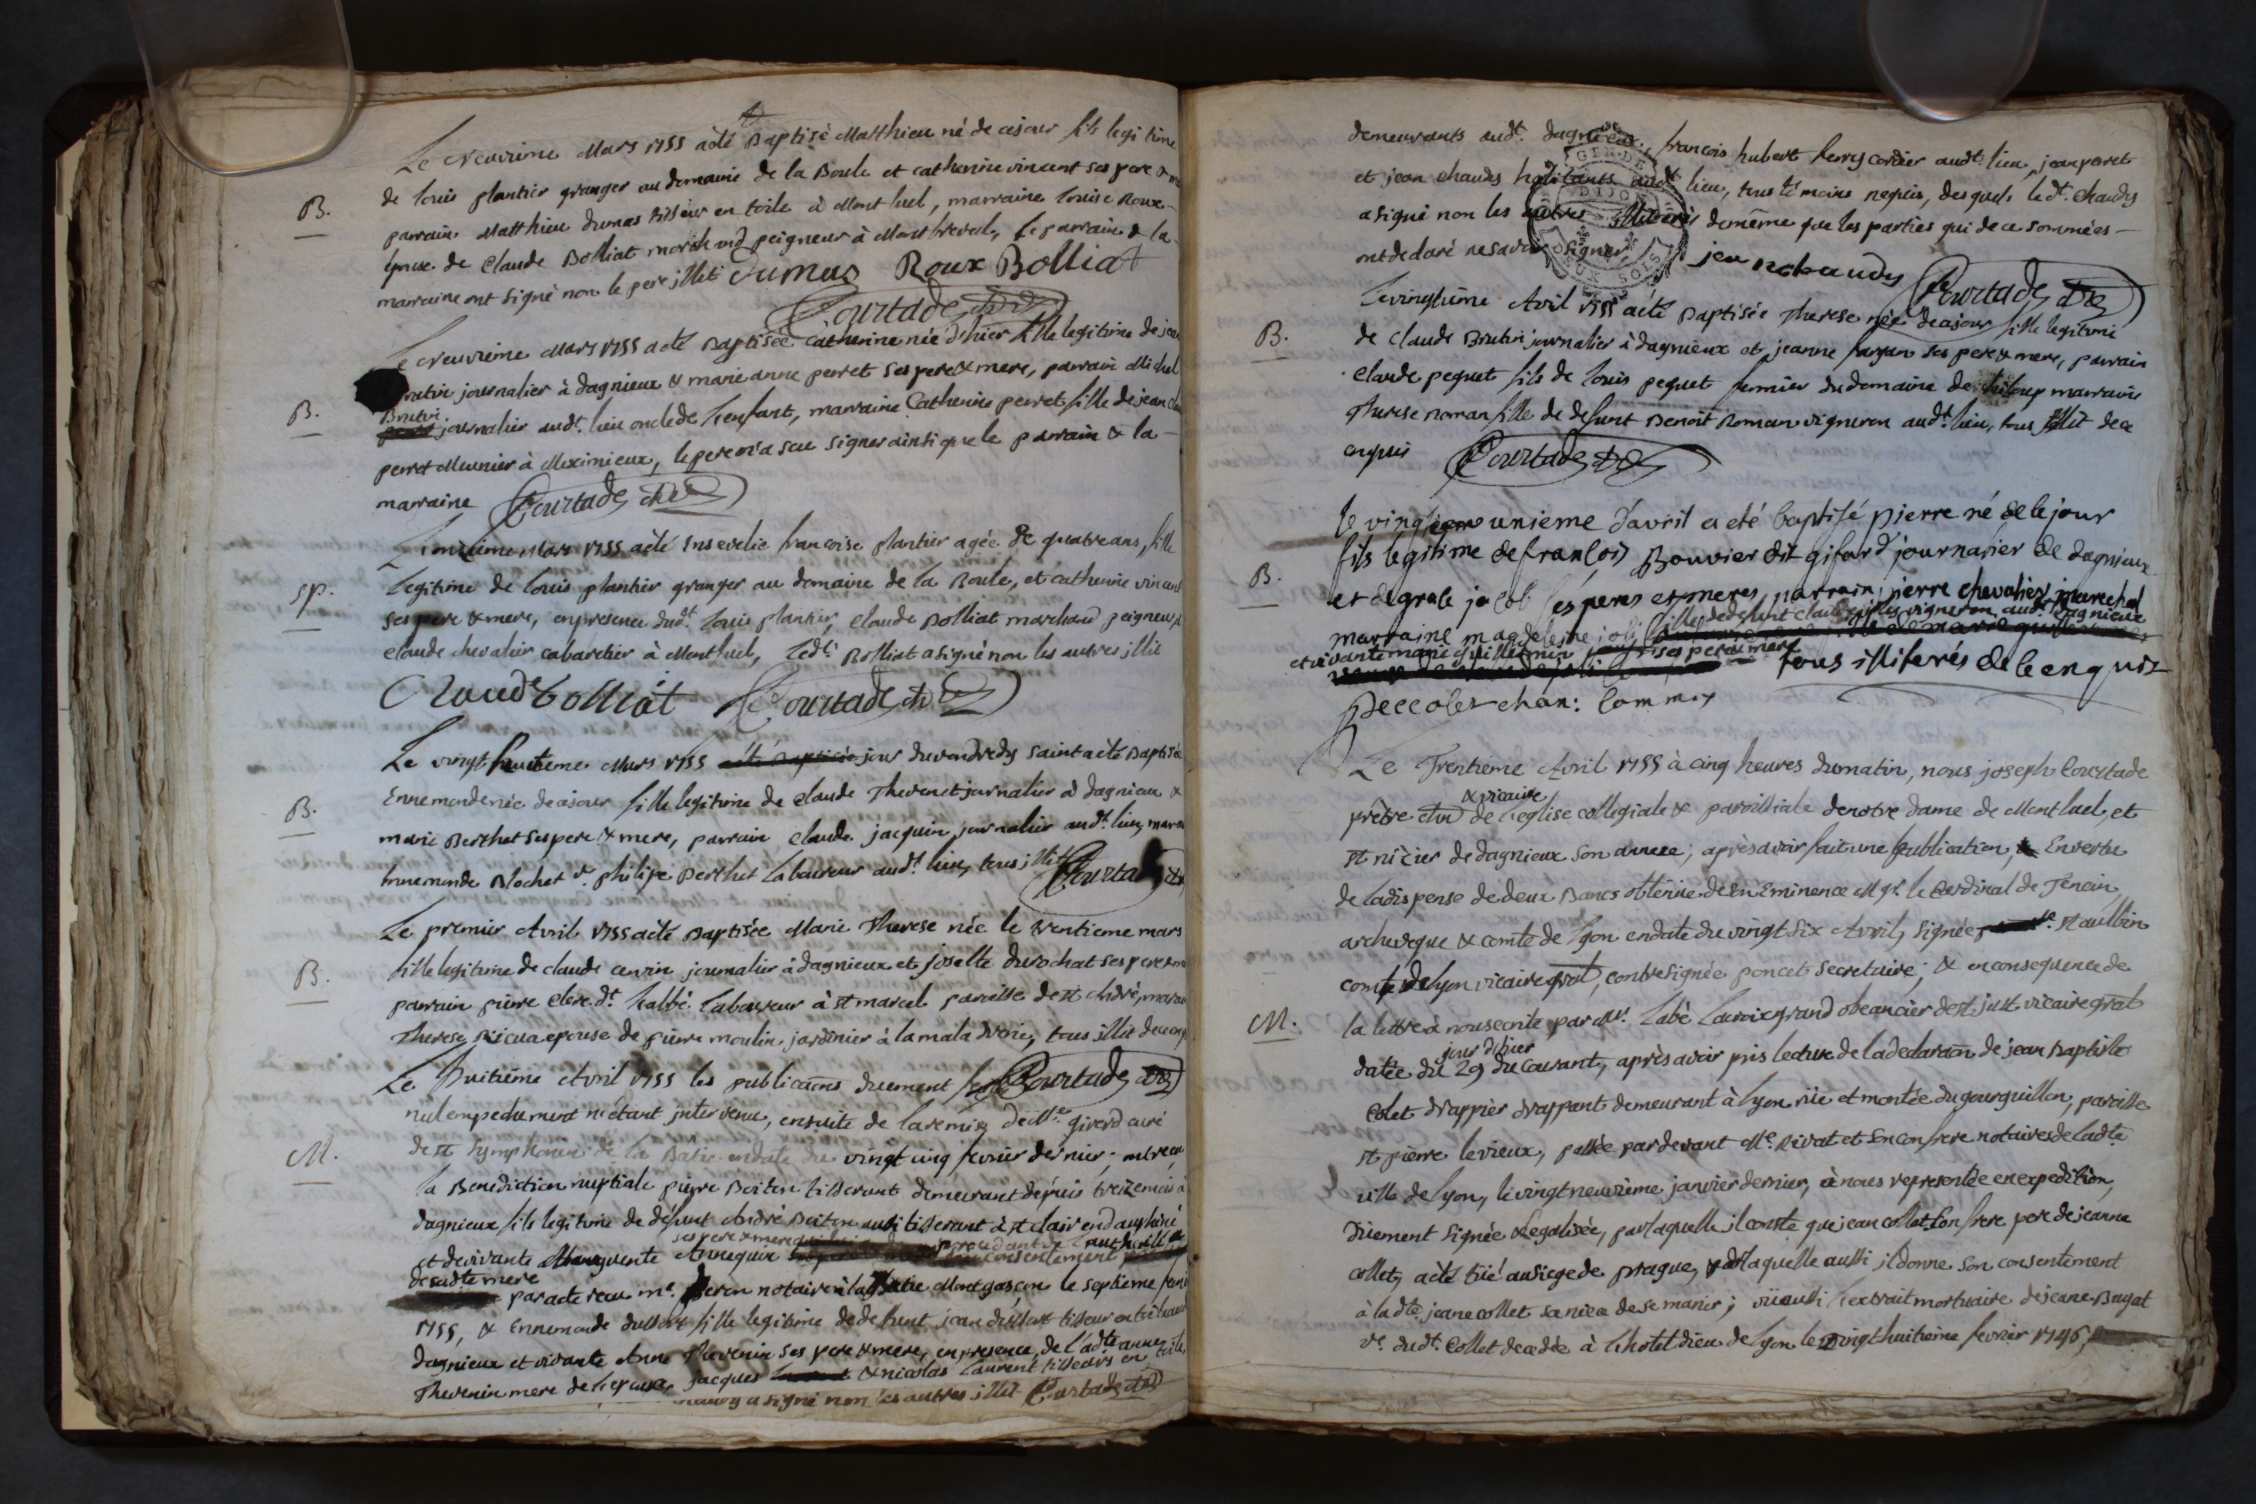 Le neuvieme Mars 1755 a été Baptisé Matthieu né de ce jour fils legitime
B.
de Louis plantier granger au domaine de la Boule et catherine vincent ses pere &
parrain Matthieu dumas tisseur en toile à Mont luel, marraine Louise Roux
epouse de Claude Bolliat marchand peigneur à Montluel, le parrain & la
marraine ont signé non le pere illit. Dumas Roux Bolliat
Courtade
Le neuvieme Mars 1755 a été Baptisée Catherine née d'hier fille legitime de jean
Brutin journalier à dagnieux & marie anne perret ses pere & mere, parrain Michel
B.
Brutin journalier aud.t lieu oncle de l'enfant, marraine Catherine perret fille de jean
perret Meunier à Meximieux, le pere n'a sceu signer ainsi que le parrain & la
marraine Courtade
L'onzieme Mars 1755 a été Insevelie francoise plantier agée de quatre ans, fille
sp.
legitime de Louis plantier granger au domaine de la Boule, et catherine vincent
ses pere & mere, en presence dud.t Louis plantier, Claude Bolliat marchand peigneur,
claude chevalier cabaretier à Montluel, led.t Bolliat a signé non les autres illit
Claude bolliat Courtade
Le vingt huitieme Mars 1755 été Baptisée jour du vendredy saint a été Baptisée
B.
Ennemonde née de ce jour fille legitime de Claude Thevenet journalier à dagnieux &
marie Berthet ses pere & mere, parrain Claude jacquin journalier aud.t lieu,
Ennemonde Blochet v.e philipe Berthet laboureur aud.t lieu, tous illit Courtade
Le premier Avril 1755 a été Baptisée Marie Therese née le trentieme mars
B.
fille legitime de claude journalier à dagnieux et josette durochat ses pere &
parrain pierre clerc d.t l'abbé laboureur à st marcel paroisse de st André,
Therese epouse de pierre moulin jardinier à la maladerie, tous illit de ce
Le huitieme Avril 1755 les publicaons duement Courtade
nul empechement n'étant intervenu, ensuite de la remise de M.re girerd curé
M.
de st symphorien de la Batie en date du vingt cinq fevrier dernier,
la Benediction nuptiale pierre Boiton tisserant demeurant depuis treize mois à
dagnieux fils legitime de défunt André Boiton aussi tisserant à st clair en dauphiné
ses pere & mere
et de vivante Marguerite Annequin consentement
de sadte mere
par acte receu m.e notaire à la Batie Montgascon le septieme
1755, & Ennemonde fille legitime de defunt jean tisseur en toile
dagnieux et vivante Anne Thevenin ses pere & mere, en presence de l'adte anne
Thevenin mere de l'epouse, jacques & nicolas Laurent tisseurs en toile
a signé non les autres illit Courtade
demeurants aud.t dagnieux, francois hubert ferry cordier aud.t lieu, jean peret
et jean chaudy habitants aud.t lieu, tous témoins requis, des quels le d.t chaudy
a signé non les autres illiterés de même que les parties qui de ce sommées
ont declaré ne savoir signer, jean chaudy Courtade
Le vingtième Avril 1755 a été Baptisée Therese née de ce jour fille legitime
B.
de Claude Brutin journalier à dagnieux et jeanne ses pere & mere, parrain
Claude pequet fils de Louis pequet fermier du domaine de chiloup marraine
Therese Roman fille de defunt Benoit Roman vigneron aud.t lieu, tous illit de ce
enquis Courtade
le vingt unieme d'avril a eté baptisé pierre né de le jour
fils legitime de francois Bouvier dit gifard journarier de dagnieux
B.
et de grase jacob ses peres et meres, parrain pierre chevalier marechal
fille de defunt claude vigneron aud.t dagnieux
marraine magdeleine joli
et vivante marie ses pere & mere tous illiterés de le enquis
Peccolet chan: Comm.
Le Trentieme Avril 1755 à cinq heures du matin, nous joseph Courtade
& vicaire
prêtre ch.ne de l'eglise collegiale & paroissiale de notre dame de Montluel, et
st nicier de dagnieux son annexe; après avoir fait une publication, En vertu
de la dispense de deux Bancs obtenue de son Eminence M.gr le Cardinal de Tencin
archeveque & comte de lyon en date du vingt six Avril, signée st aulbin
comte de lyon vicaire gral, contresignée poncet secretaire; & en consequence de
M.
la lettre à nous ecrite par M.r l'abé Lacroix grand obeancier de st just vicaire gral
jour d'hier
datée du 29 du courant, après avoir pris lecture de la declaraon de jean Baptiste
Colet drappier drappant demeurant à lyon rüe et montée du gourguillon, paroisse
st pierre le vieux, passée par devant M.e Rivat et son confrere notaires de ladte
ville de lyon, le vingt neuvième janvier dernier, à nous representée en expedition,
düement signée & legalisée, par laquelle il conste que jean collet son frere pere de jeanne
collet, a été tüé au siege de prague, & par laquelle aussi il donne son consentement
à la dte jeane collet sa niece de se marier; vü aussi l'extrait mortuaire de jeane Bagat
v.e dud.t Collet decedée à l'hotel dieu de lyon le vingt huitieme fevrier 1746,